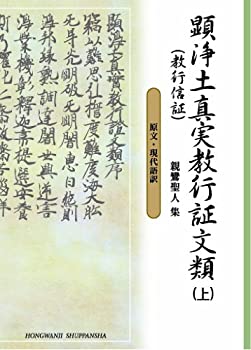 顕浄土真実教行証文類(上)
(教行信証)
親鸞聖人 集
原文・現代語訳
顯浄土真實教行證文類序
竊以難思弘誓度難度海大舩
光明破无明闇恵日
浄邦縁熟調達闍世興逆害
浄業機彰釋迦韋提選安養
HONGWANJI SHUPPANSHA